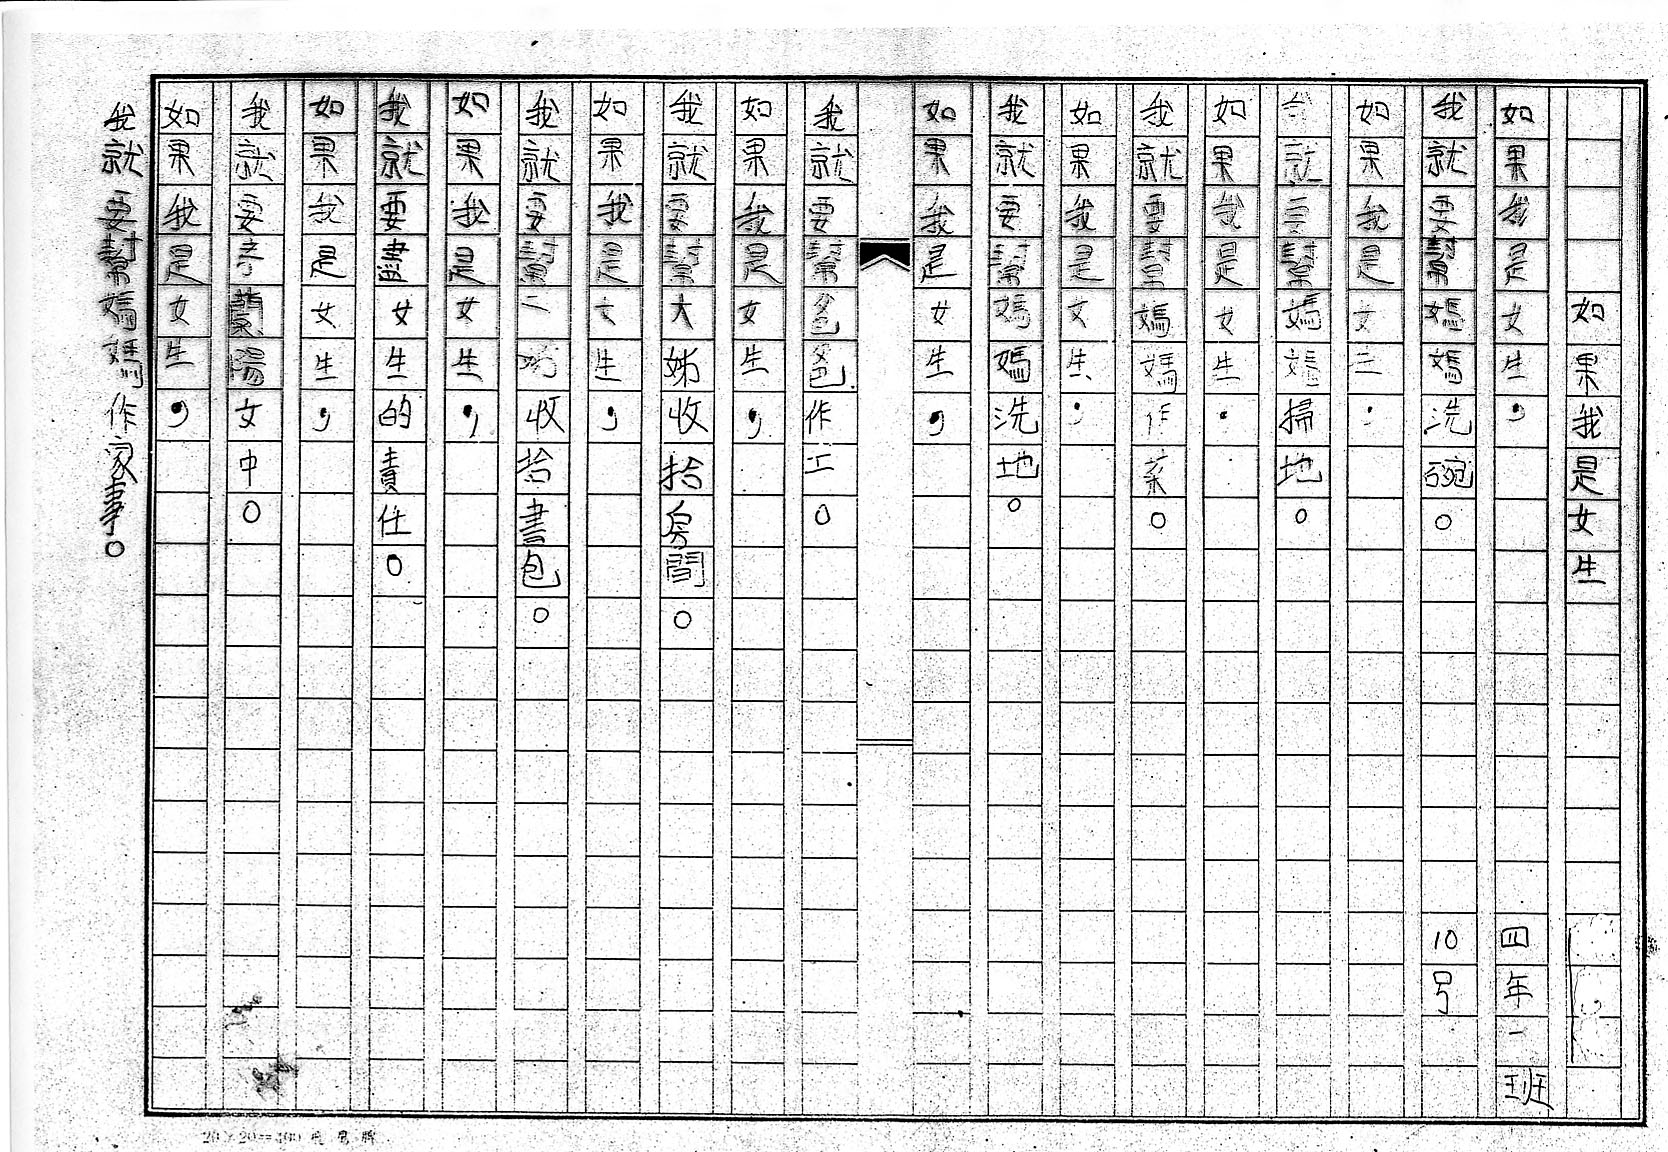 如果我是女生
如果我是女生，
四年一班
我就要幫媽媽洗碗。
10号
如果我是女生，
我就要幫媽媽掃地。
如果我是女生，
我就要幫媽媽作菜。
如果我是女生，
我就要幫媽媽洗地。
如果我是女生，
我就要幫爸爸作工。
如果我是女生，
我就要幫大姊收拾房間。
如果我是女生，
我就要幫二姊收拾書包。
如果我是女生，
我就要盡女生的責任。
如果我是女生，
我就要考蘭陽女中。
如果我是女生，
我就要幫媽媽作家事。
20×20=400